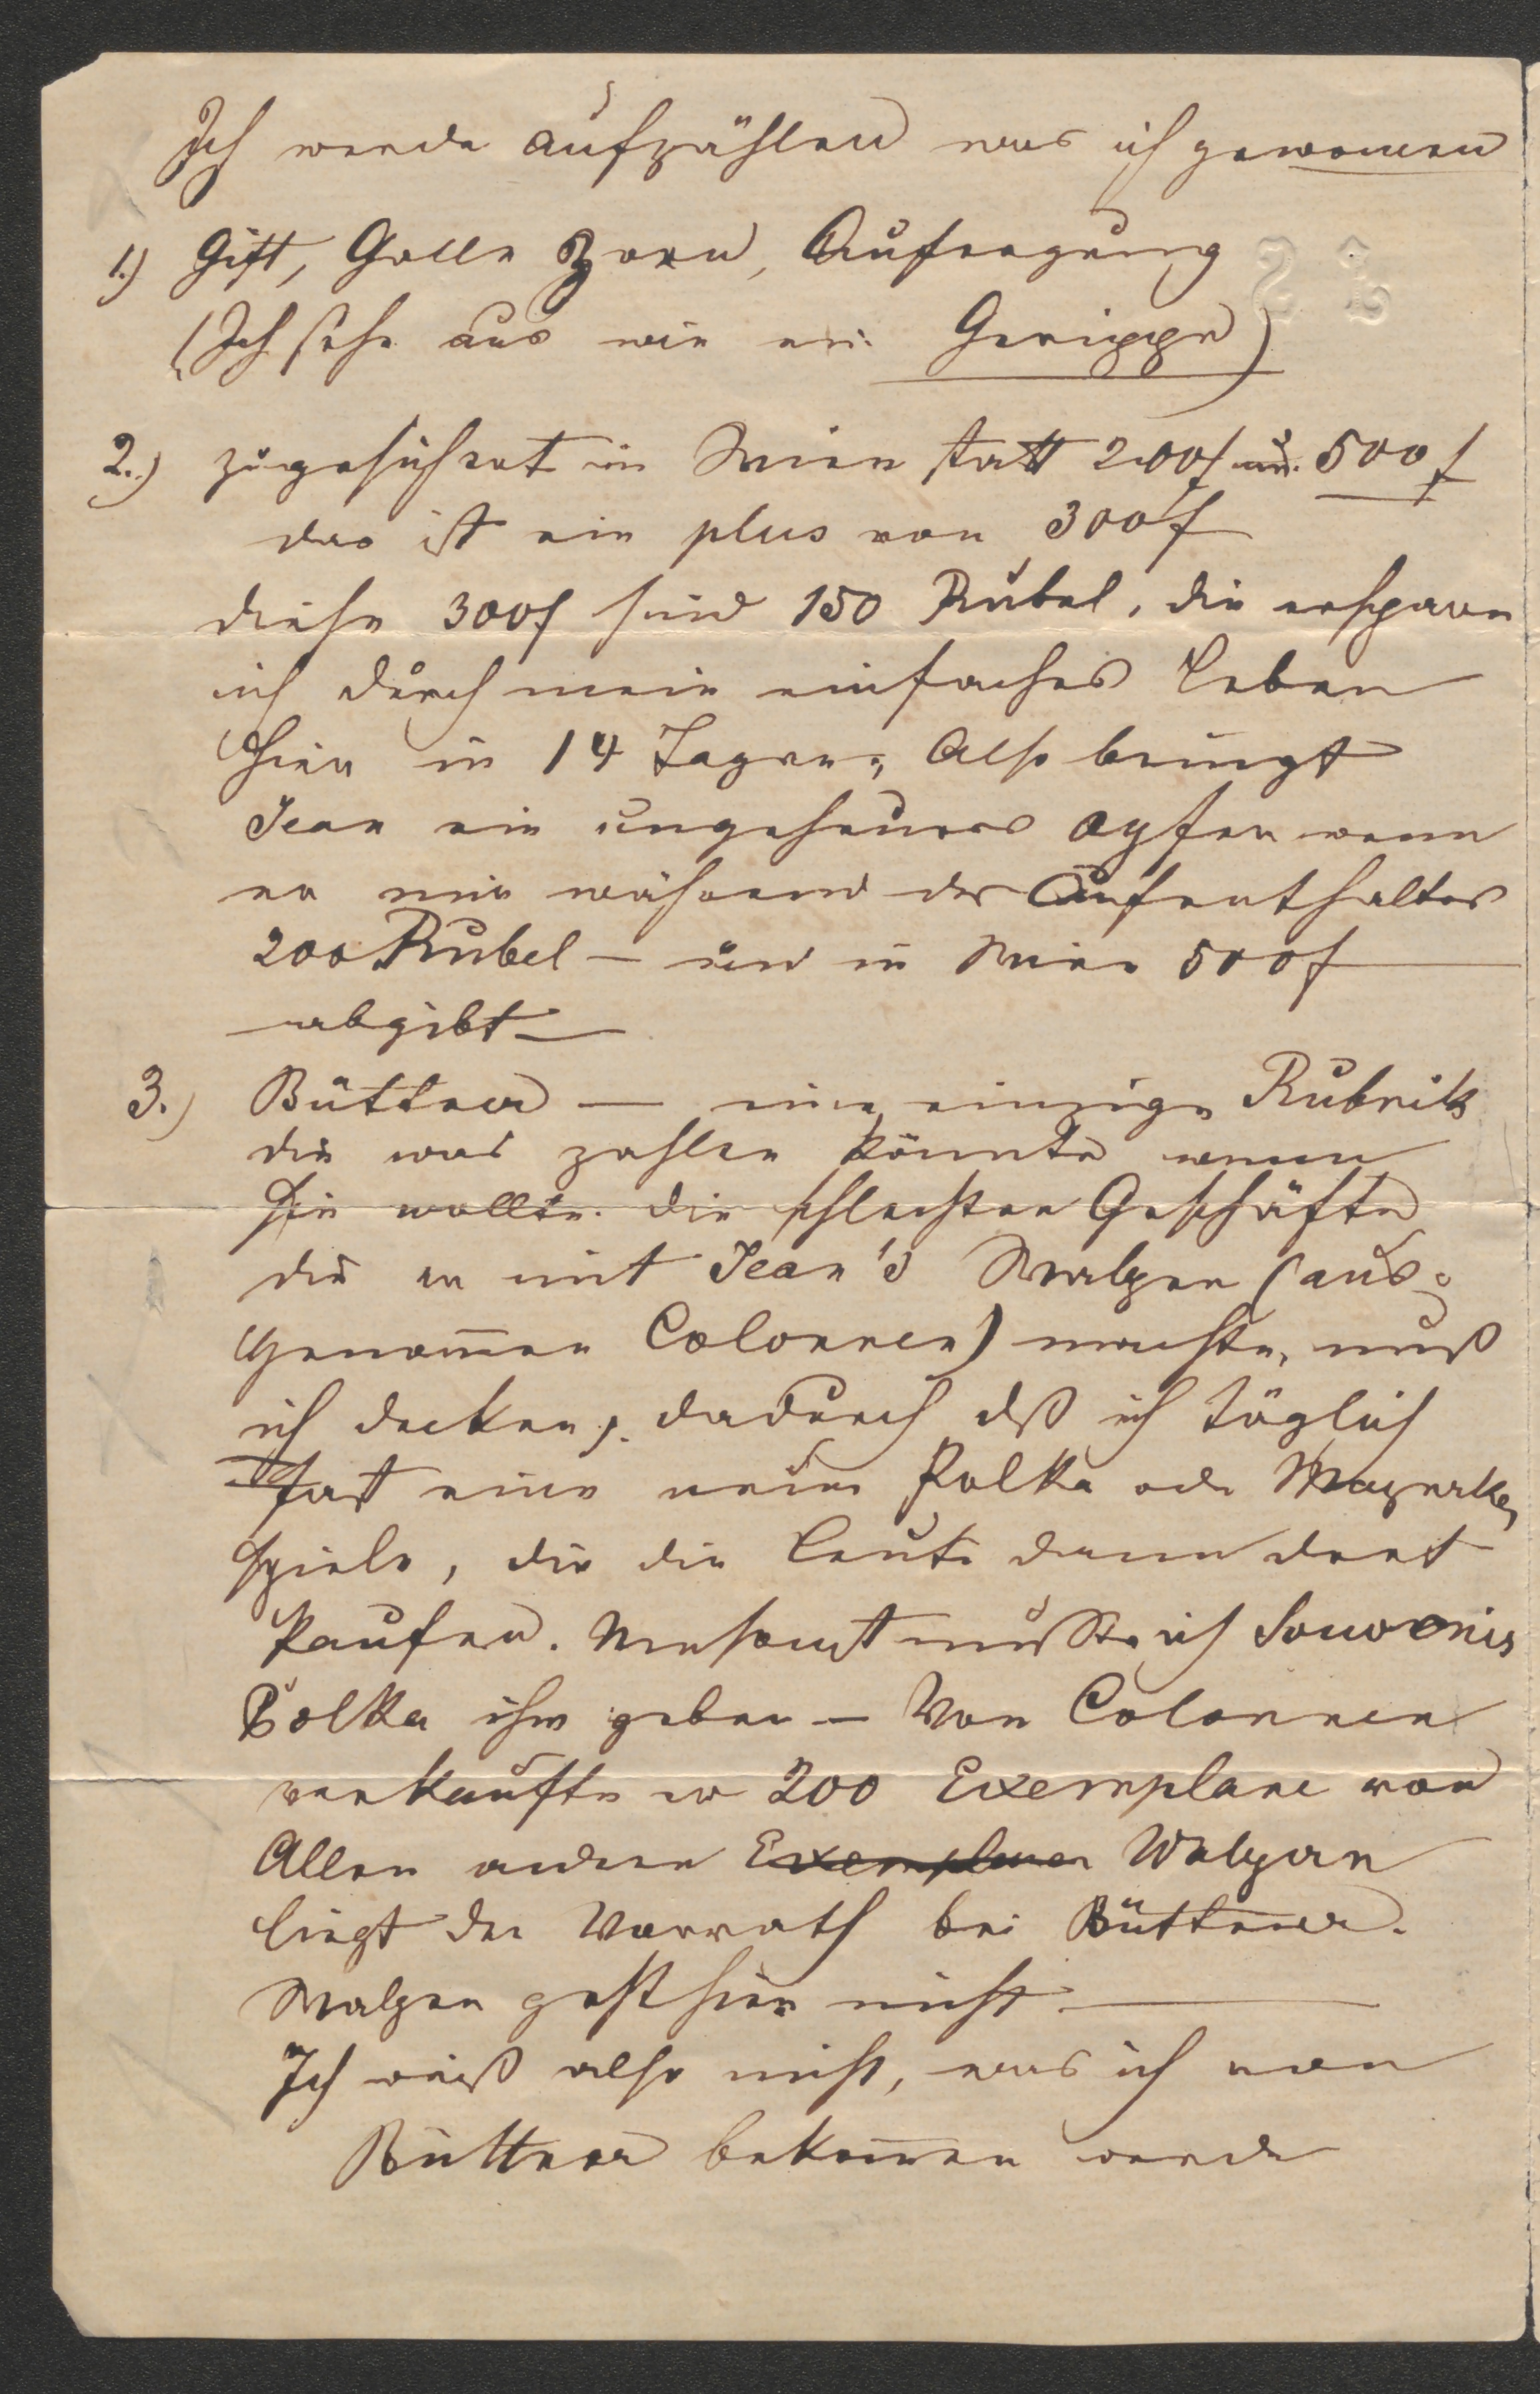 Ich werde aufzählen was ich gewonnen
1.) Gift, Galle Zorn, Aufregung
(Ich sehe aus wie ein Gerippe)
2.) zugesichert in Wien statt 200f nun 500f
das ist ein plus von 300f
diese 300f sind 150 Rubel, die erspare
ich durch mein einfaches Leben
hier in 14 Tagen, Also bringt
Jean ein ungeheures Opfer wenn
er mir während des Aufenthaltes
200 Rubel – und in Wien 500f
abgibt –
3.) Büttner — eine einzige Rubrik
die was zahlen könnte wenn
Sie wollte. die schlechten Geschäfte
die er mit Jean's Walzer (aus=
genom̄en Colonnen) machte, muß
ich decken, dadurch dß ich täglich
fast eine neue Polka oder Mazurka
spiele, die die Leute dann dort
kaufen. Umsonst mußte ich Souvenir
Polka ihm geben – Von Colonnen
verkaufte er 200 Exemplare von
Allen andern Exemplaren Walzern
liegt der Vorrath bei Büttner.
Walzer geht hier nicht —
Ich weiß also nicht, was ich von
Büttner bekom̄en werde